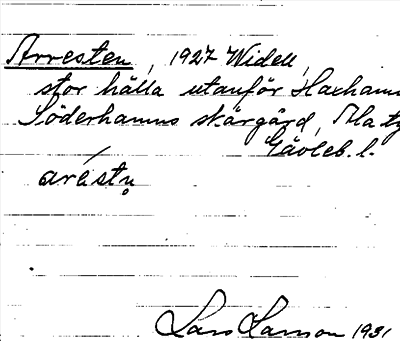 Arresten, 1927 Widell,
stor hälla utanför Haxhamn
Söderhamns skärgård,
Gävleb. l.
aréstn̥
Lars Larsson 1931